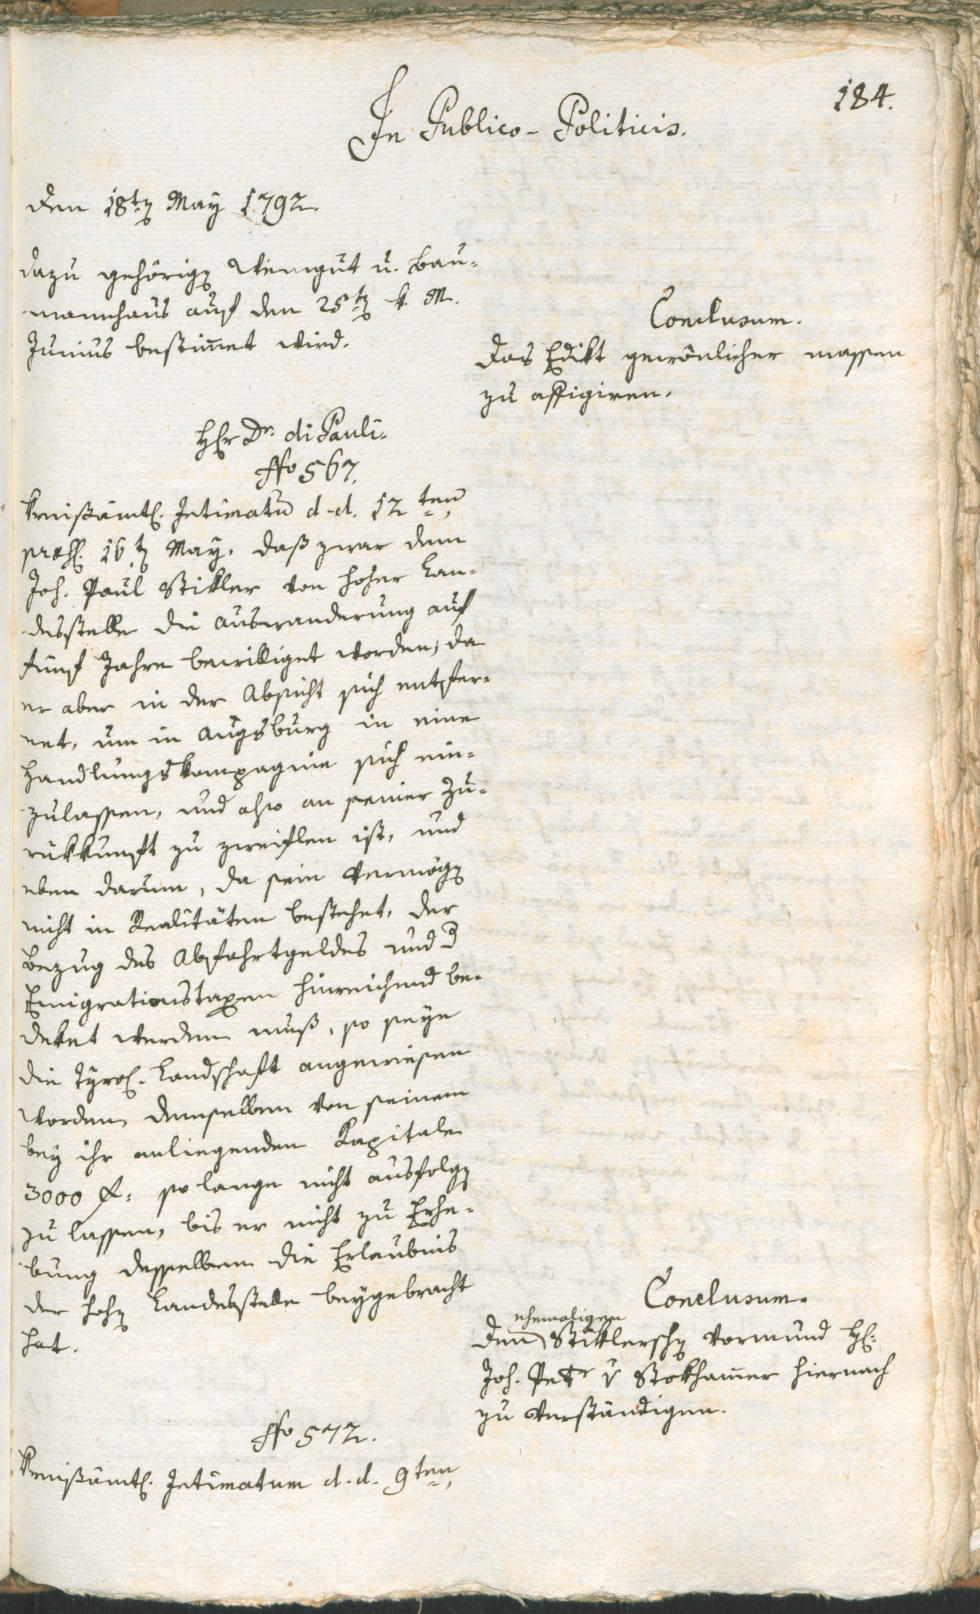 184.
In Publico-Politicis.
den 18ten May 1792.
dazu gehörigen Weingut u. Bau-
mannhaus auf den 25ten k. M.
Junius bestimmet wird.
Conclusum.
Das Edikt gewönlicher massen
zu affigiren.
Hr Dr. di Pauli.
No 567.
Kreisämtl. Intimatum d-d. 12ten,
præs. 16ten May, daß zwar dem
Joh. Paul Stikler von hoher Lan-
desstelle die Auswanderung auf
fünf Jahre bewilliget worden, da
er aber in der Absicht sich entfer-
net, um in Augsburg in eine
Handlungskompagnie sich ein-
zulassen, und also an seiner Zu-
rükkunft zu zweiflen ist, und
eben darum, da sein Vermögen
nicht in Realitäten bestehet, der
Bezug des Abfahrtgeldes und d
Emigrationstaxen hinreichend be-
deket werden muß, so seye
die Tyrol. Landschaft angewiesen
worden, demselben von seinem
bey ihr anliegenden Kapitale
3000 f. so lange nicht ausfolgen
zu lassen, bis er nicht zu Erhe-
bung desselben die Erlaubnis
der hohen Landesstelle beygebracht
hat.
Conclusum.
Den ehemaligen Stiklerschen Vormund H:
Joh. Petr v Stokhammer hiernach
zu verständigen.
No 572.
Kreisämtl. Intimatum d.d. 9ten,